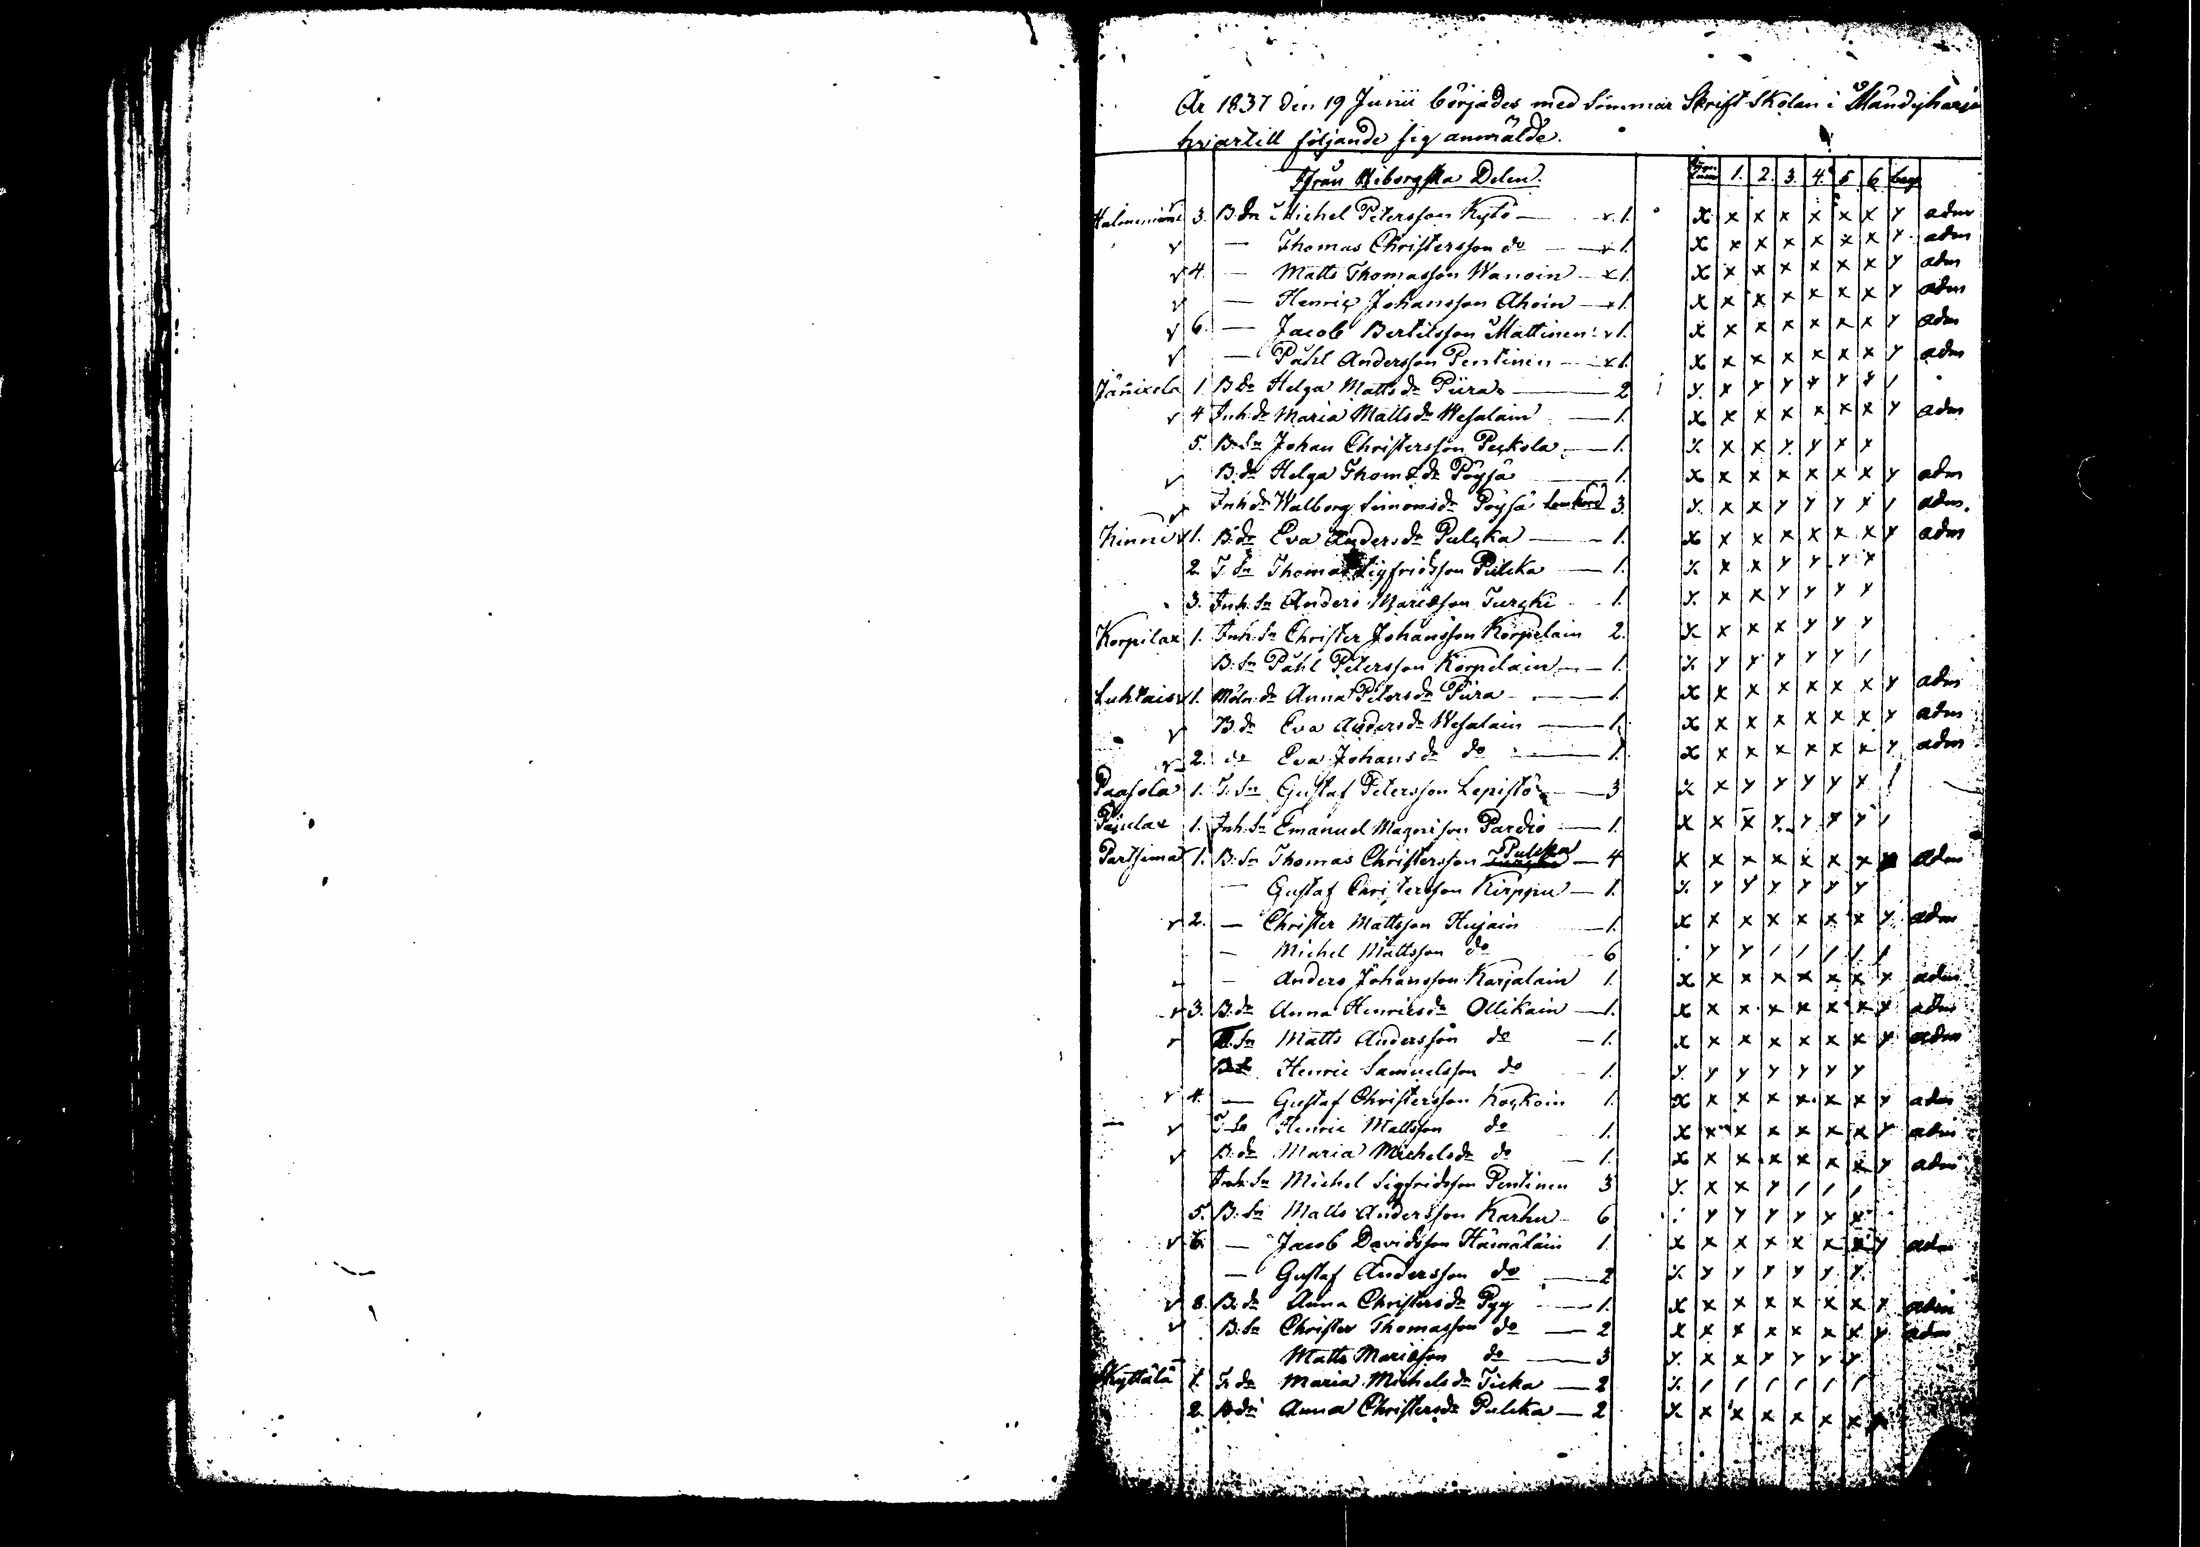 År 1837 den 19 Junii börjades med Sommar Skrift Skolan i Mändyharju
hvartill följande sig anmälde.
Ifrån Wiborgska Delen. 1. 2. 3. 4. 5. 6. beg
3. B. dr Michel Petersson Kylö — x 1. x x x x x x x y adm
v — Thomas Christersson do — x 1. x x x x x x x y adm
v 4. — Matts Thomasson Wanoin — x 1. x x x x x x x y adm
v — Henric Johansson Ahoin — x 1. x x x x x x x y adm
v 6. — Jacob Bertilsson Mattinen x 1. x x x x x x x y adm
v — Påhl Andersson Pentinen — x 1. x x x x x x x y adm
Jänixela 1. B. dr Helga Matts dr Piira — 2 y x y y y y y /
v 4 Inh. dr Maria Matts dr Wesalain — 1. x x x x x x x y adm
5. B. Sn Johan Christersson Peckola — 1. y x x y y x x
v B. dr Helga Thom. dr Pöysä — 1. x x x x x x x y adm
v Inh. dr Walborg Simons dr Pöysä 3. y x x y y y x / adm.
Kinni v 1. B. dr Eva Anders dr Pulcka — 1. x x x x x x x y adm
2. T. Sn Thomas Sigfridsson Pulcka — 1. y x x y y y y
3. Inh. Sn Anders Mariæson Turcki 1. y x x y y y y
Korpilax 1. Inh. Sn Christer Johansson Korpelain 2. y x x x y y y
B. Sn Påhl Petersson Korpelain — 1. y y y y y y /
Luhtais v 1. Möln. dr Anna Peters dr Piira — 1. x x x x x x x y adm
v B. dr Eva Anders dr Wesalain — 1. x x x x x x x y adm
v 2. do Eva Johans dr do — 1. x x x x x x x y adm
Paasola 1. T. Sn Gustaf Petersson Lepistö — 3 y x y y y y y /
1. Inh. Sn Emanuel Magnison Pardio — 1. x x x y y y y /
Partsima 1. B. Sn Thomas Christersson Pulcka — 4 x x x x x x x adm
— Gustaf Christersson Kirppu — 1. y y y y y y y
v 2. — Christer Mattsson Hujain — 1. x x x x x x x y adm
— Michel Mattsson do — 6 y y / / / / /
v — Anders Johansson Karjalain 1. x x x x x x x y adm
v 3. B. dr Anna Henrics dr Ollikain — 1. x x x x x x x y adm
v T. Sn Matts Andersson do — 1. x x x x x x x y adm
Henric Samuelsson do — 1. y y y y y y y
v 4. — Gustaf Christersson Kockoin 1. x x x x x x x y adm
v T. Sn Henric Mattsson do 1. x x x x x x x y adm
v B. dr Maria Michels dr do — 1. x x x x x x x y adm
Inh. Sn Michel Sigfridsson Pentinen 3 y x x y / / /
5. B. Sn Matts Andersson Karhu — 6 / y y y y x x
v 6. — Jacob Davidsson Hämäläin 1. x x x x x x x y adm
— Gustaf Andersson do — 2 y y y y y y y
v 8. B. dr Anna Christers dr Pyy — 1. x x x x x x x y adm
v B. Sn Christer Thomasson do — 2 x x x x x x x y adm
Matts Mariæson do — 3 y x x y y y y
Kyttälä 1. T. dr Maria Michels dr Ticka — 2 y / / / / / /
2. B. dr Anna Christers dr Pulcka — 2 y x x x x x x